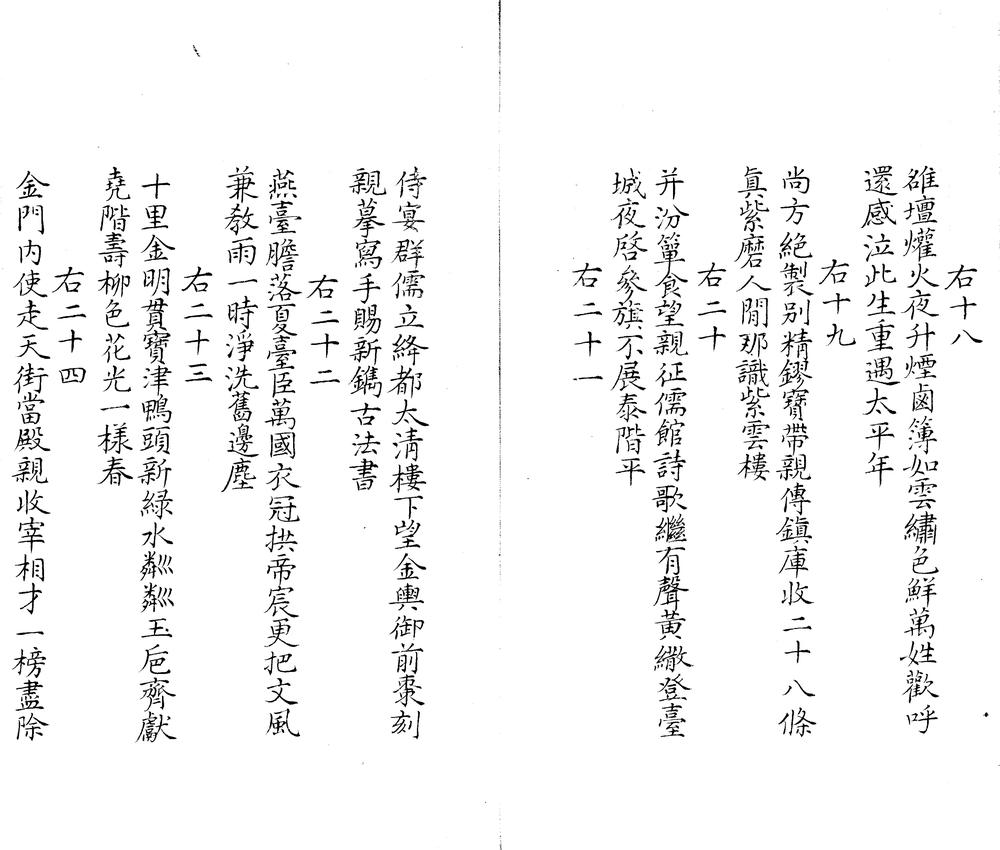 右十八
雒壇爟火夜升煙鹵簿如雲繡色鮮萬姓歡呼
還感泣此生重遇太平年
右十九
尚方絕製别精鏐寶帶親傳鎮庫收二十八條
眞紫磨人間那識紫雲樓
右二十
并汾簞食望親征儒館詩歌繼有聲黃繖登臺
城夜啓參旗不展泰階平
右二十一
侍宴群儒立絳都太淸樓下望金輿御前棗刻
親摹寫手賜新鐫古法書
右二十二
燕臺膽落夏臺臣萬國衣冠拱帝宸更把文風
兼敎雨一時淨洗舊邊塵
右二十三
十里金明貫寶津鴨頭新緑水粼粼玉巵齊獻
堯階壽柳色花光一樣春
右二十四
金門内使走天街當殿親收宰相才一榜盡除